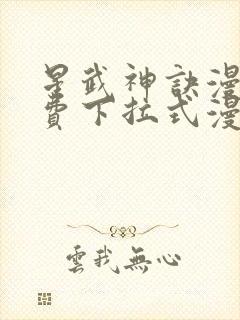 星武神訣漫
費下拉式漫
雲我無心